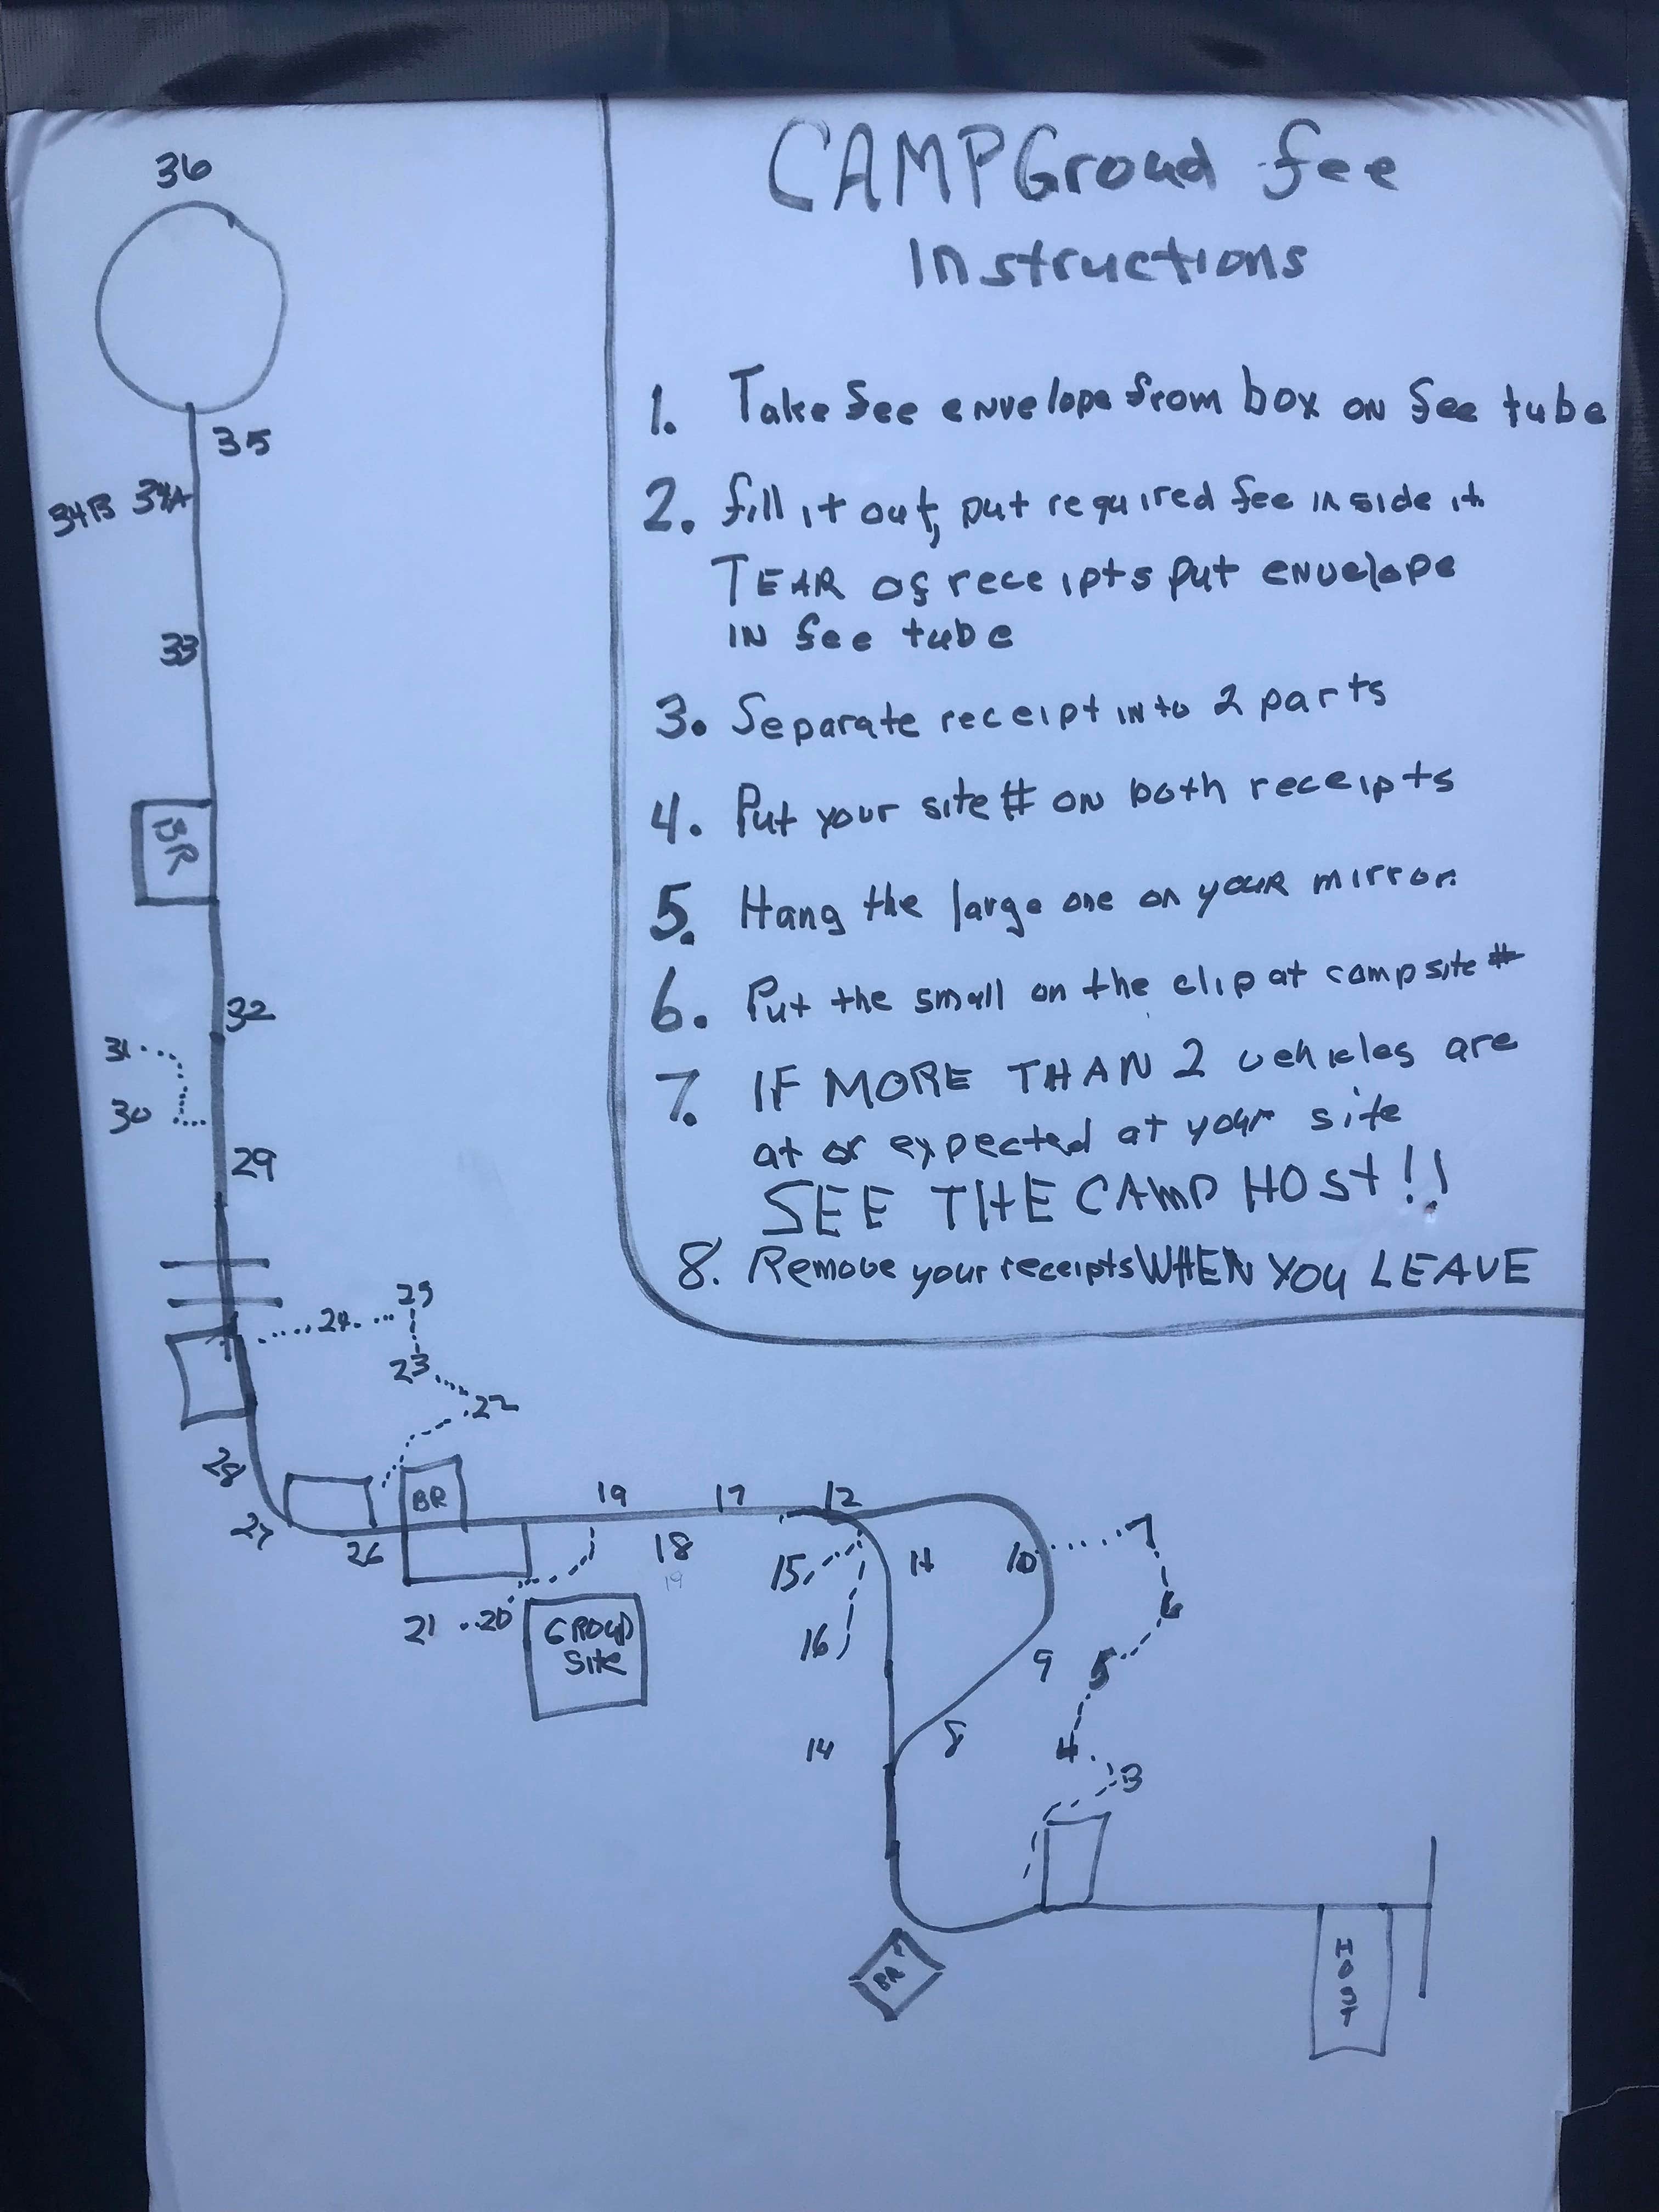 CAMPGroud fee
Instructions
1. Take fee envelope from box on fee tube
2. fill it out, put required fee inside it.
TEAR of receipts put envelope
IN fee tube
3. Separate receipt into 2 parts
4. Put your site # on both receipts
5. Hang the large one on your mirror.
6. Put the small on the clip at campsite #
7. IF MORE THAN 2 vehicles are
at or expected at your site
SEE THE CAMP HOST!!
8. Remove your receipts WHEN YOU LEAVE
36
35
34B 34A
33
BR
32
31
30
29
25
24
23
22
28
27
26
BR
19
17
12
18
19
15
11
10
7
21
20
GROUP
Site
16
6
9
5
14
8
4
3
BR
HOST